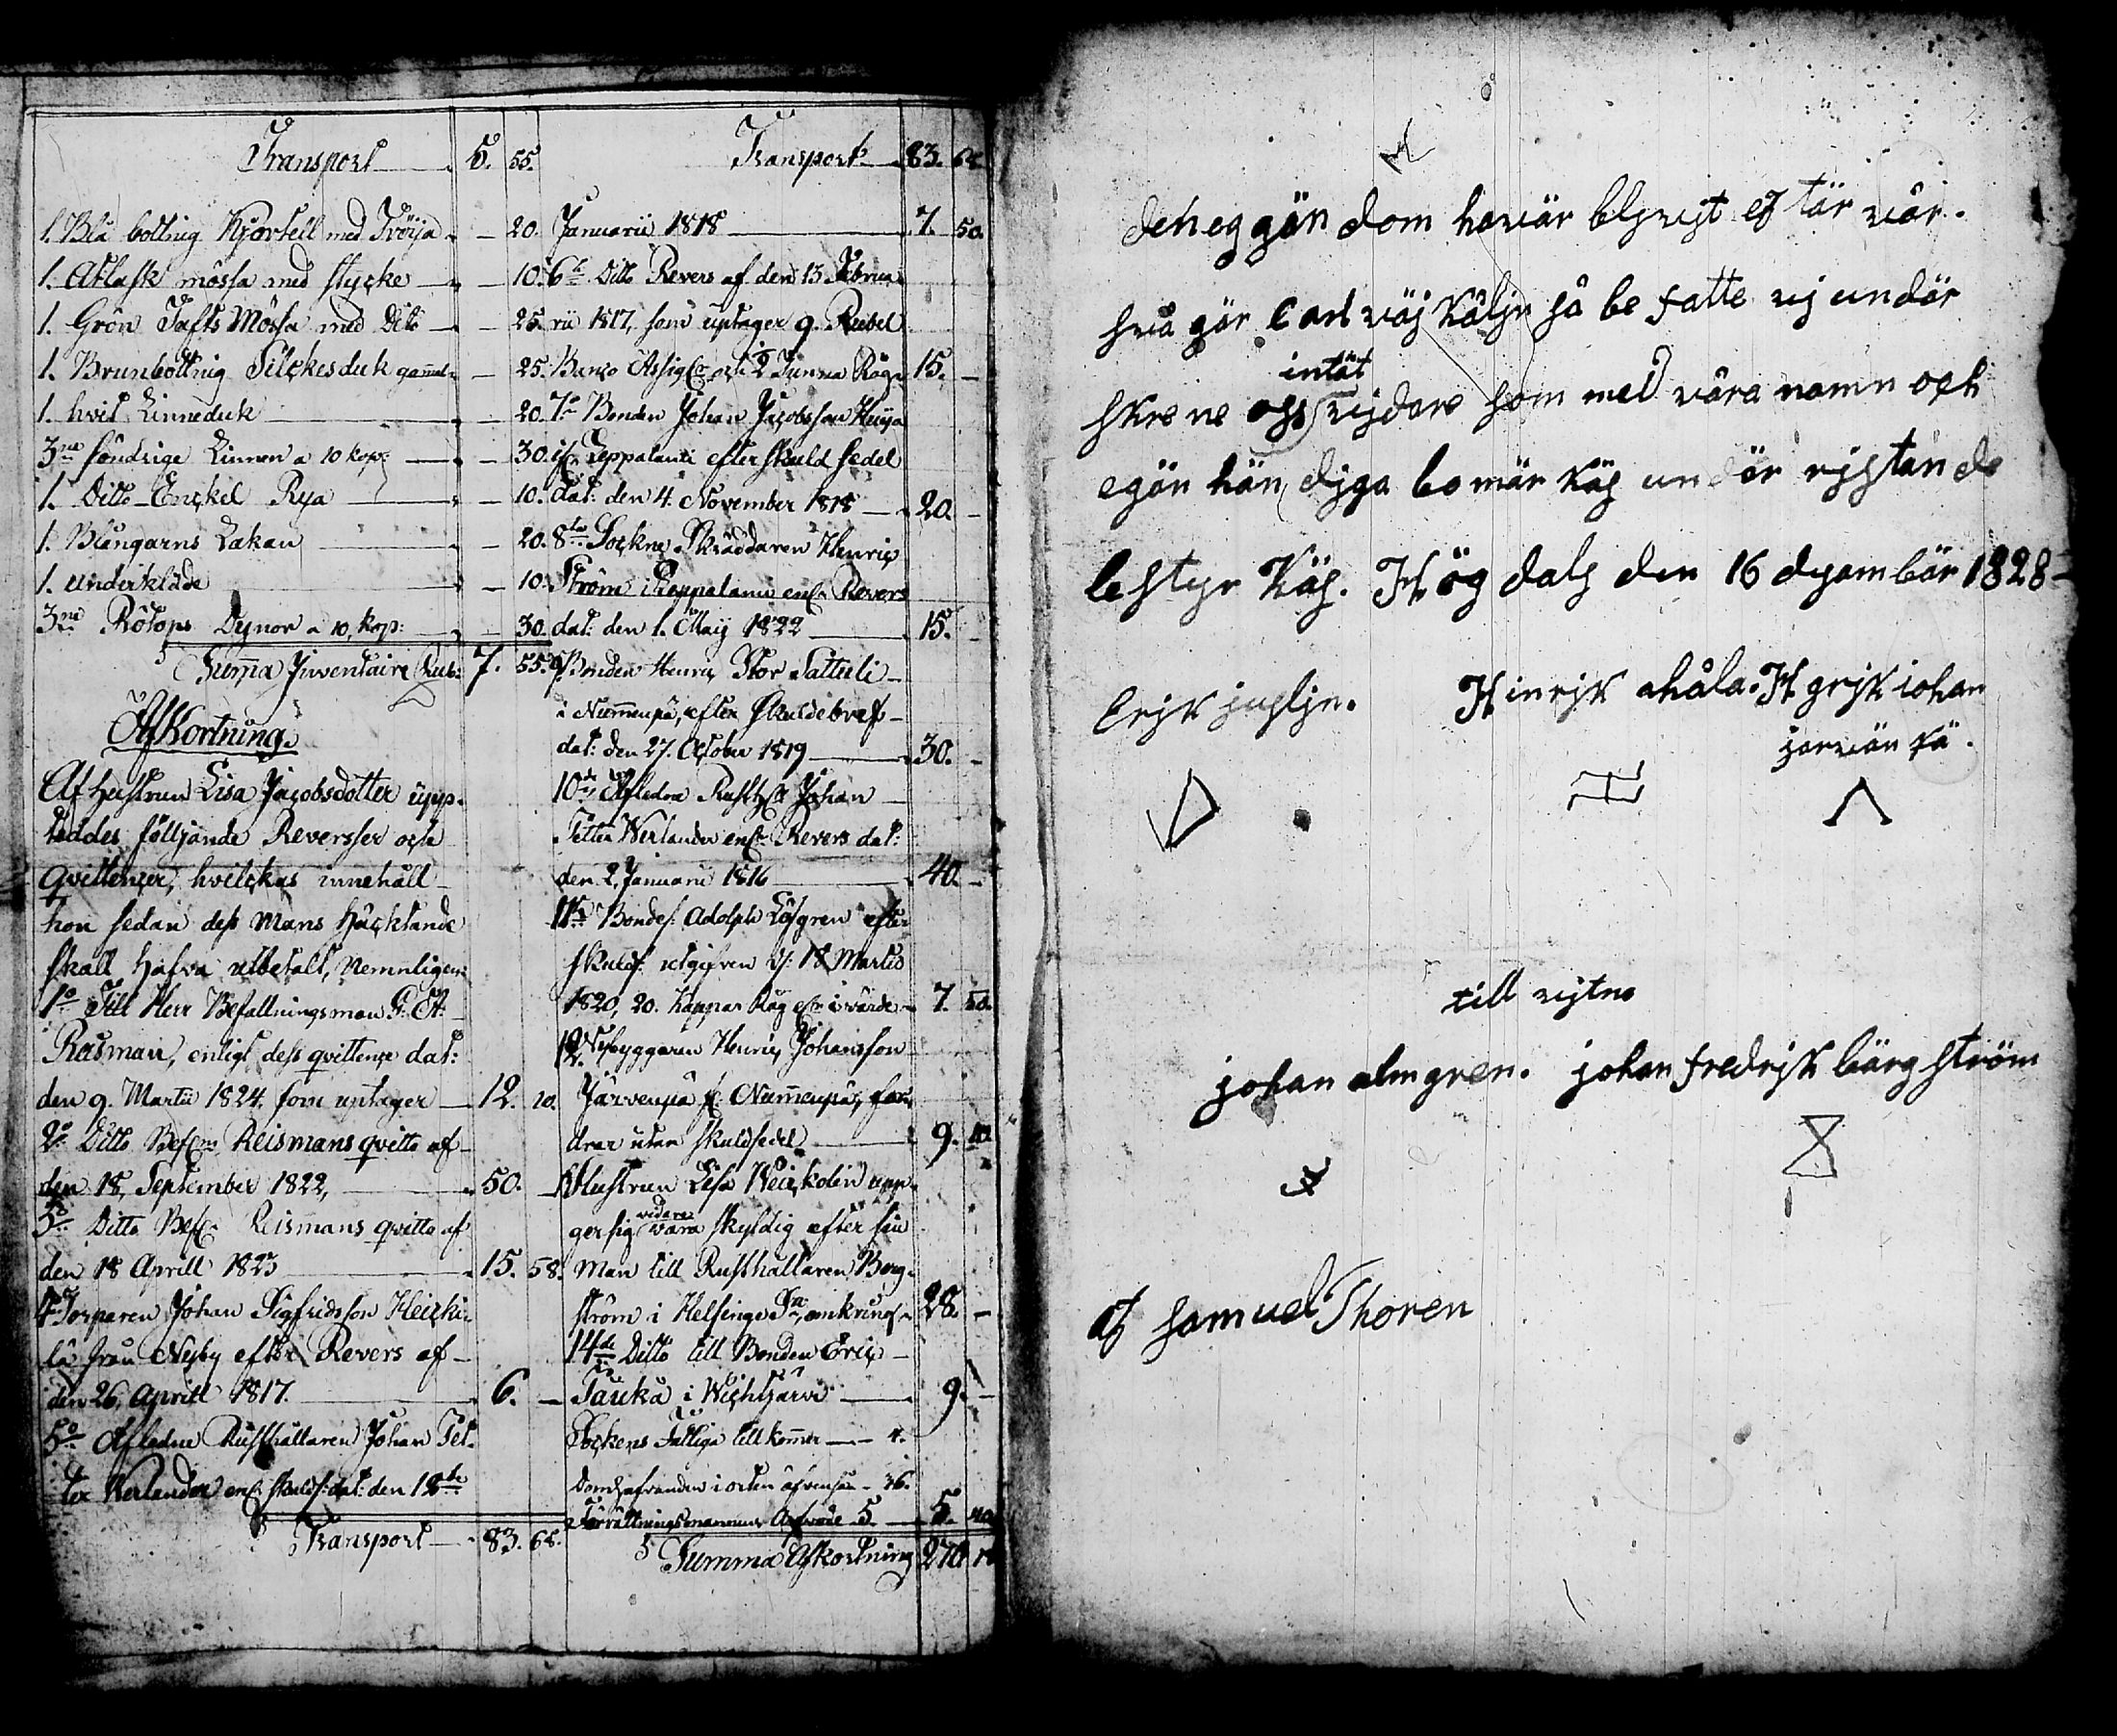 Transport 5. 55.
1. Blå bottnig Kjorteil med Tröija - 20.
1. Atlask mössa med stycke - 10.
1. Grön Tafts Mössa med Dito - 25.
1. Brunbottnig Silckesduk gamal - 25.
1. hvit Linneduk - 20.
3ne söndrige Linnen a 10 kop: - 30.
1. Ditto Enckel Rya - 10.
1. Blångarns Lakan - 20.
1. underkläde - 10.
3ne Dynor a 10, kop: - 30.
Summa Inventairie 7. 55.
Afkortning.
Af Hustrun Lisa Jacobsdotter upp-
teddes följjande Reversser och
qvittencer, hvilckas innehåll
hon sedan dess Mans
skall hafva utbetalt, Nemnligen:
1o Till Herr Befallningsman
enligt dess qvittence dat:
den 9. Martii 1824. som uptager 12. 20.
2o Ditto Reismans qvitto af
den 18, September 1822, 50. -
3o Ditto Reismans qvitto af
den 18 Aprill 1823 15. 58.
4o Torparen Johan Sigfridsson Heicki-
lä från Nyby efter Revers af
den 26, Aprill 1817. 6. -
5o Afledne Rusthållaren Johan Pet-
ter Werlander skulds: dat: den 18de
Transport 83. 68.
Transport 83. 68
Januarii 1818 7. 50.
6te Ditto Revers af den 13 Februa-
rii 1817, som uptager 9. Rubel
Banco och 2 Tunna Råg 15. -
7de Bonden Johan Jacobsson
Leppalanti efter skuld sedel
dat: den 4. November 1818 20. -
8de Sockne Skräddaren Henric
Ström i Revers
dat: den 1. Maij 1822 15. -
9. Bonden Henric Stor
i Nummenpä, efter Skuldebref
dat: den 27. October 1819 30. -
10de Afledne Johan
Petter Werlander Revers dat:
den 2. Januarii 1816 40. -
11te Bondes. Adolph Löfgren efter
skulds: utgifven d: 18 Martio
1820, 20. kappar Råg 7. 50.
12. Nybyggaren Henric Johansson
Järvenpä Nummenpä, for-
drar utan skuldsedel 9.
Hustrun Lisa upp-
ger sig vidare vara skyldig efter sin
Man till Rusthållaren Berg-
ström i Helsinge omkring 28. -
14de Ditto till Bonden Eric
Tauka i Wichtjärvi 9. -
Sockens Fattiga tillkommer 4.
36.
Förrättningsmannens Arfvode 5. 5. 40
Summa Afkortning 270
deheggän dom haviär blyvijt ef tär vår.
svå gär Carl väj kålin så be fatte vj undär
intät
skrevne oss vijdare som med våra namn och
egän hän dyga bomär käs undär rystande
bestyr Käs. Hög dals den 16 dysambär 1828-
Erjk juslin. Hinrjk ahåla. Hgrjk iohan
jarvän pä.
till vjtne
johan almgren. johan fredrjk bärg ström
af samuel Thoren